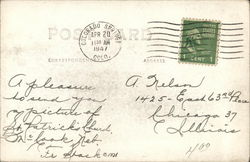 POST CARD
COLORADO SPRINGS
APR 20
11 30 AM
1947
COLO.
CORRESPONDENCE
ADDRESS
1
CENT
1
A pleasure
to send you
a picture of
St Patricks Church
Mc Cook Neb.
A. Nelson
1425 - East 63rd Place
Chicago 37
Illinois